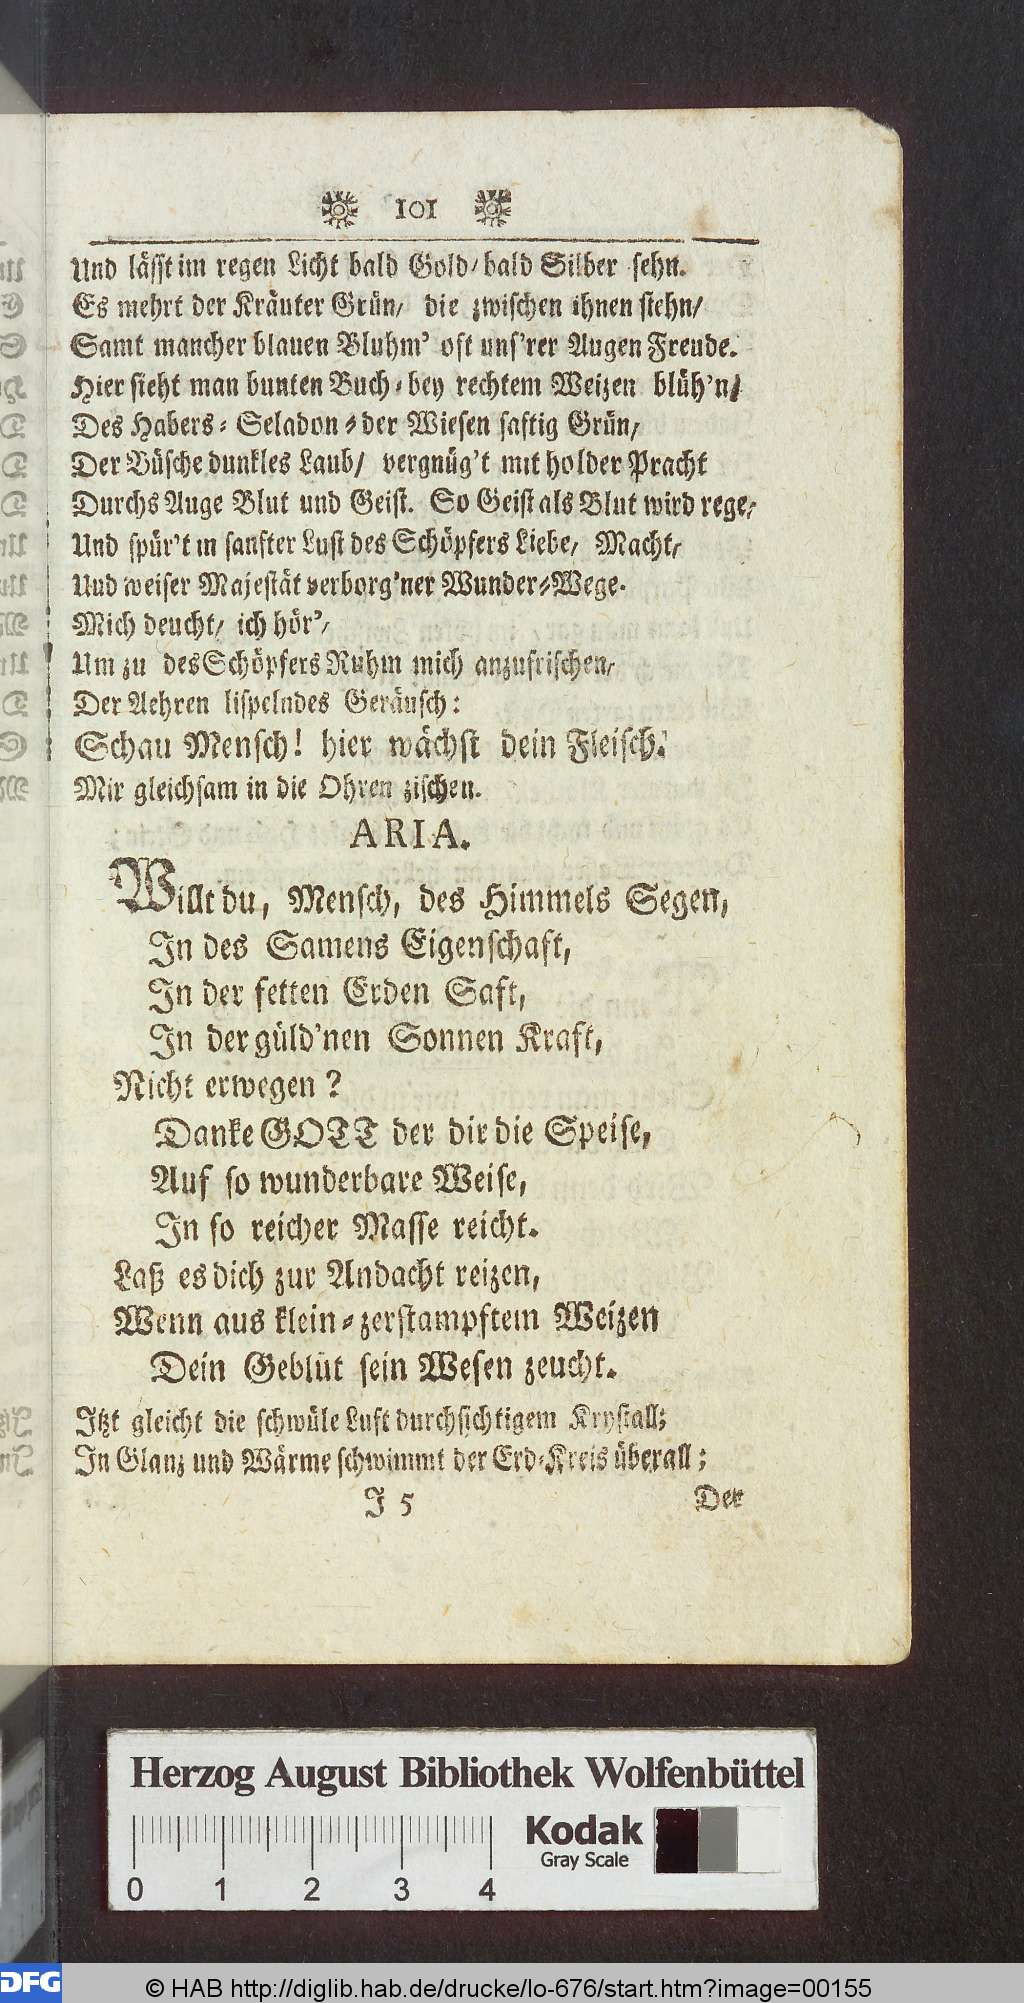 101
Und lässt im regen Licht bald Gold/ bald Silber sehn.
Es mehrt der Kräuter Grün/ die zwischen ihnen stehn/
Samt mancher blauen Bluhm' oft uns'rer Augen Freude.
Hier sieht man bunten Buch-bey rechtem Weizen blüh'n/
Des Habers-Seladon-der Wiesen saftig Grün/
Der Büsche dunkles Laub/ vergnüg't mit holder Pracht
Durchs Auge Blut und Geist. So Geist als Blut wird rege/
Und spür't in sanfter Lust des Schöpfers Liebe/ Macht/
Und weiser Majestät verborg'ner Wunder-Wege.
Mich deucht/ ich hör'/
Um zu des Schöpfers Ruhm mich anzufrischen/
Der Aehren lispelndes Geräusch:
Schau Mensch! hier wächst dein Fleisch.
Mir gleichsam in die Ohren zischen.
ARIA.
Willt du, Mensch, des Himmels Segen,
In des Samens Eigenschaft,
In der fetten Erden Saft,
In der güld'nen Sonnen Kraft,
Nicht erwegen?
Danke GOTT der dir die Speise,
Auf so wunderbare Weise,
In so reicher Masse reicht.
Laß es dich zur Andacht reizen,
Wenn aus klein-zerstampftem Weizen
Dein Geblüt sein Wesen zeucht.
Itzt gleicht die schwüle Luft durchsichtigem Krystall;
In Glanz und Wärme schwimmt der Erd-Kreis überall;
J 5
Der
Herzog August Bibliothek Wolfenbüttel
Kodak
Gray Scale
0 1 2 3 4
DFG
© HAB http://diglib.hab.de/drucke/lo-676/start.htm?image=00155